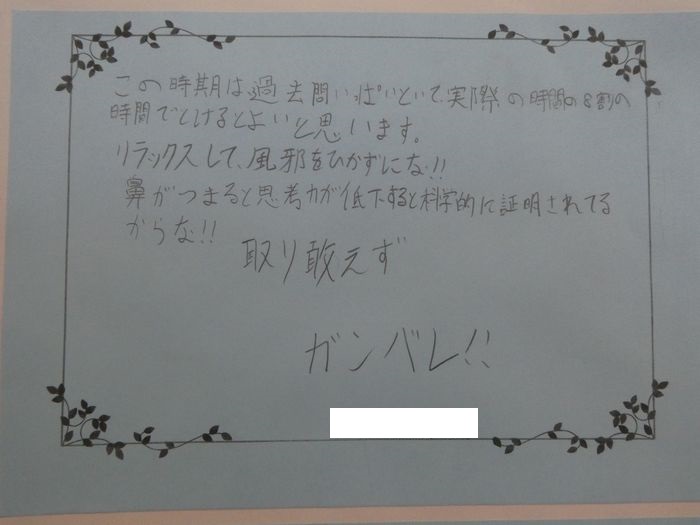 この時期は過去問いっぱいといて、実際の時間の8割の
時間でとけるとよいと思います。
リラックスして、風邪をひかずにな!!
鼻がつまると思考力が低下すると科学的に証明されてる
からな!!
取り敢えず
ガンバレ!!